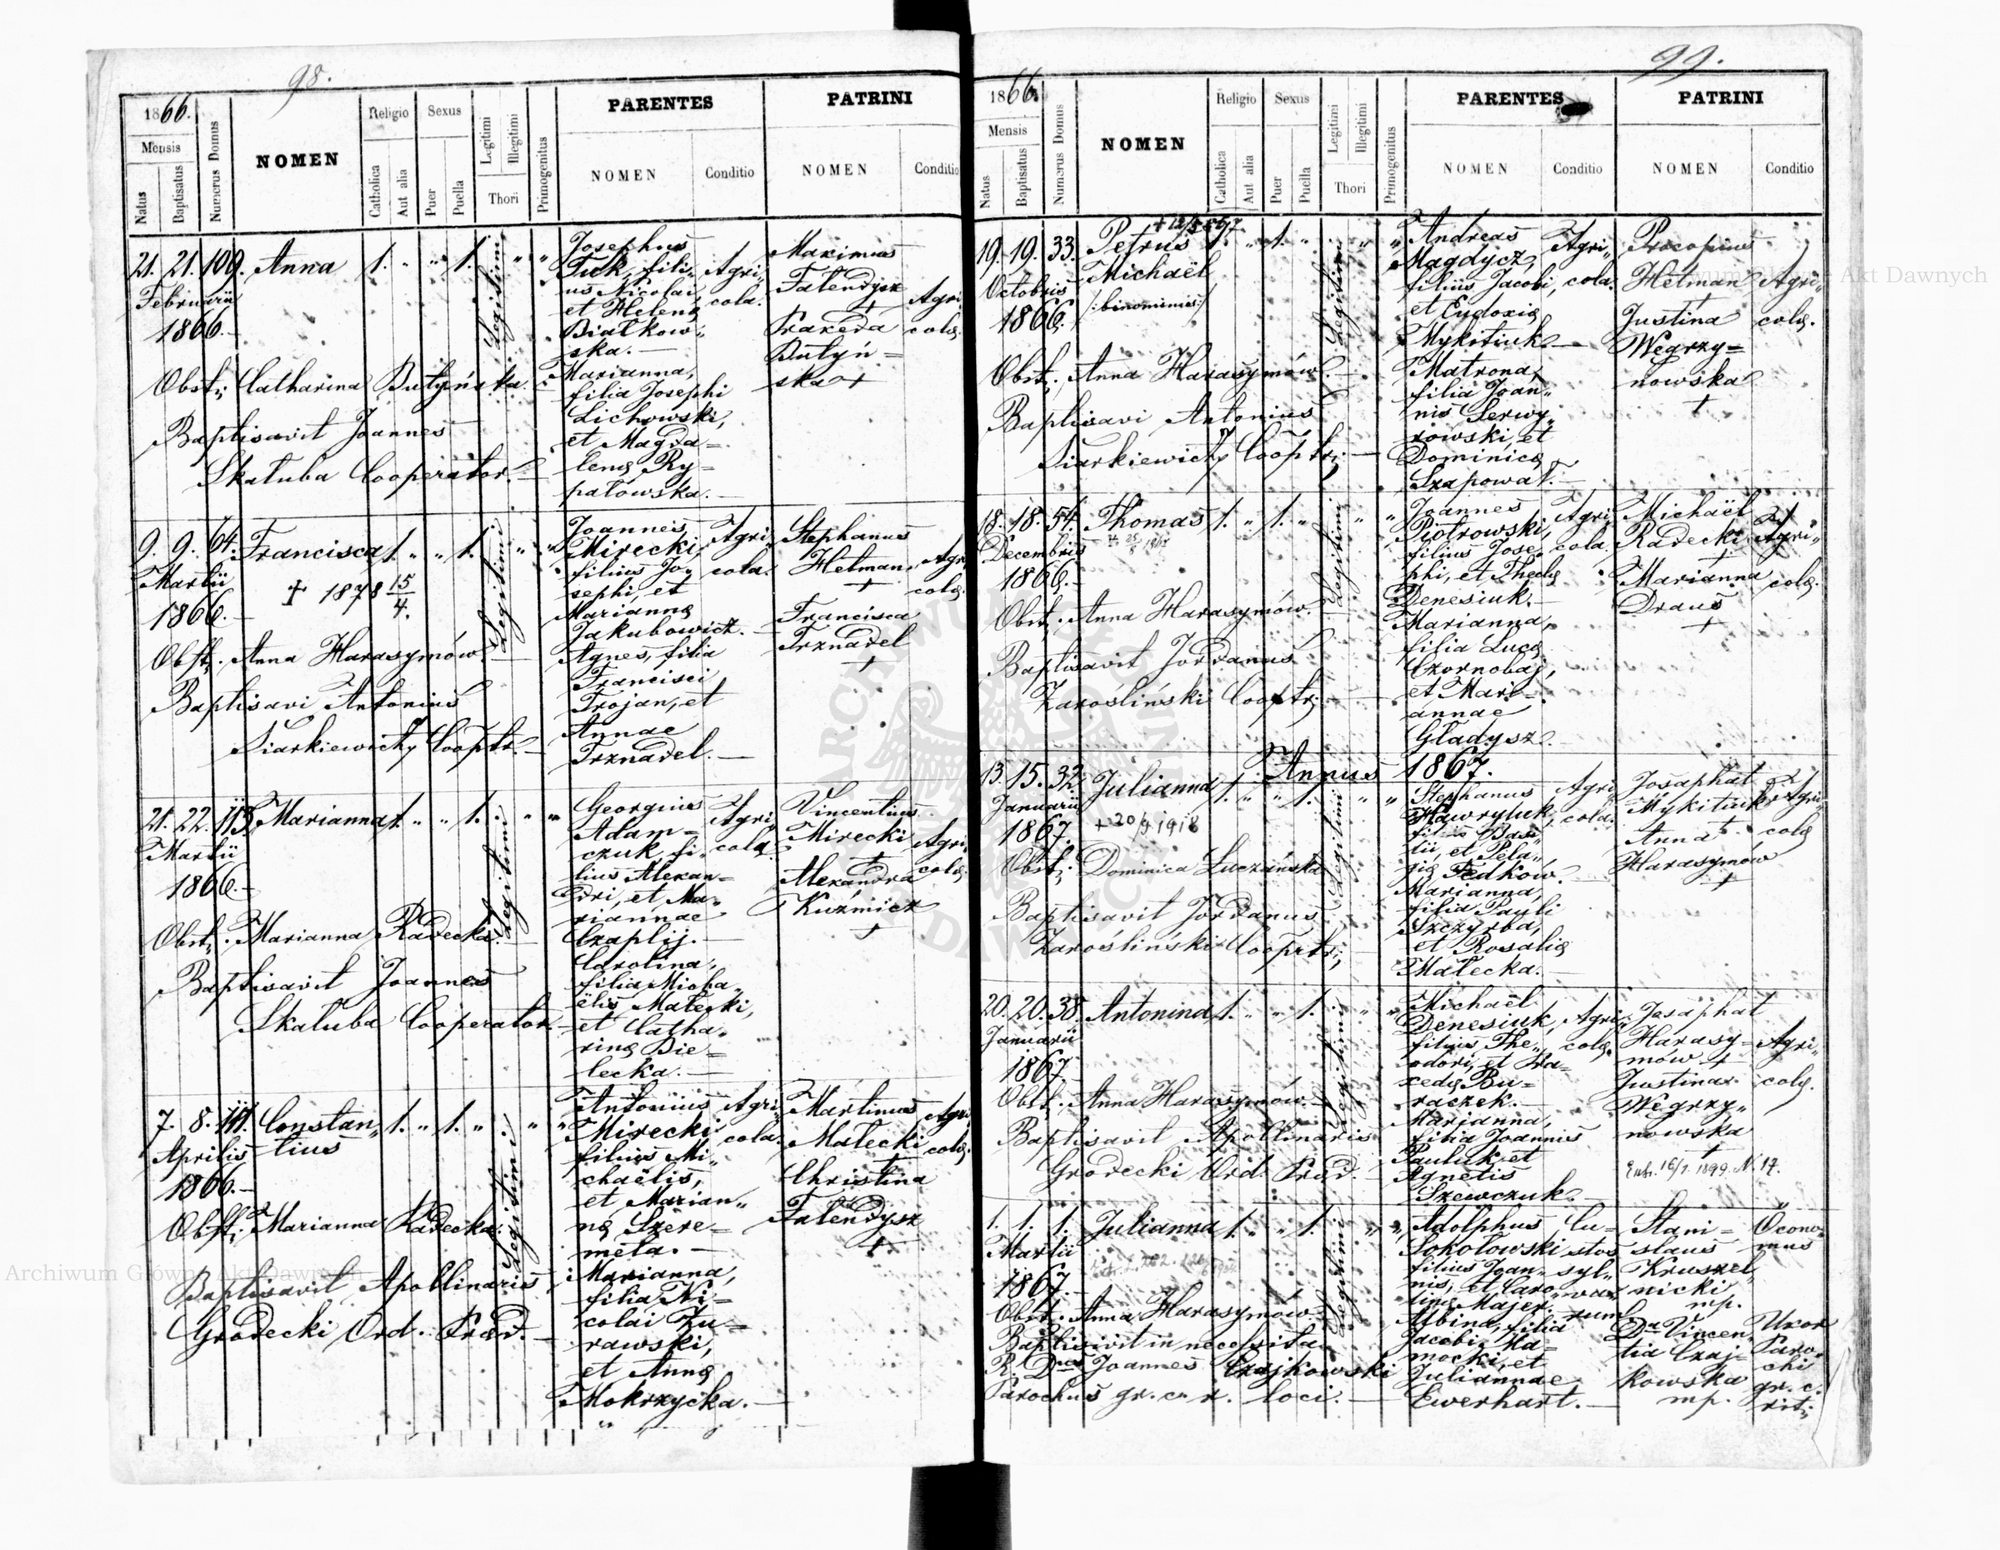 98.
1866.
Mensis
Natus
Baptisatus
Numerus Domus
NOMEN
Religio
Catholica
Aut alia
Sexus
Puer
Puella
Legitimi
Illegitimi
Thori
Primogenitus
PARENTES
NOMEN
Conditio
PATRINI
NOMEN
Conditio
21. 21. 109. Anna 1. " " 1.
Februarii
1866.
Legitimi
Obst: Catharina Butyńska
Baptisavit Joannes
Skałuba Cooperator.
Josephus
Tuk, fili-
us Nicolai
et Helena
Białkow-
ska.
Marianna,
filia Josephi
Lichowski,
et Magda-
lena Ry-
pałowska.
Agri-
cola.
Maximus
Falendysz
+
Praxeda
Butyń-
ska +
Agri
cola.
9. 9. 64. Francisca 1. " " 1.
Martii
1866.
+ 1878 15/4.
Legitimi
Obst: Anna Harasymów.
Baptisavi Antonius
Siarkiewicz Cooptr.
Joannes
Mirecki,
filius Jo-
sephi, et
Marianna
Jakubowicz.
Agnes, filia
Francisci
Trojan, et
Annae
Trznadel.
Agri
cola.
Stephanus
Hetman
+
Francisca
Trznadel
+
Agri
cola.
21. 22. 113. Marianna 1. " " 1.
Martii
1866.
Legitimi
Obst: Marianna Radecka.
Baptisavit Joannes
Skałuba Cooperator.
Georgius
Adam-
czuk fi-
lius Alexan-
dri, et Ma-
riannae
Czaplij.
Carolina,
filia Micha-
ëlis Małecki,
et Catha-
rina Bie-
lecka.
Agri
cola
Vincentius
Mirecki
+
Alexandra
Kuźmicz
+
Agri
cola.
7. 8. 111. Constan- 1. " 1. "
Aprilis tius
1866.
Legitimi
Obst: Marianna Radecka.
Baptisavit Apollinaris
Grodecki Ord. Praed.
Antonius
Mirecki
filius Mi-
chaëlis,
et Marian-
na Szere-
meta.
Marianna,
filia Ni-
colai Żu-
rawski,
et Anna
Mokrzycka.
Agri
cola.
Martinus
Małecki
+
Christina
Falendysz
+
Agri
cola.
99.
1866.
Mensis
Natus
Baptisatus
Numerus Domus
NOMEN
Religio
Catholica
Aut alia
Sexus
Puer
Puella
Legitimi
Illegitimi
Thori
Primogenitus
PARENTES
NOMEN
Conditio
PATRINI
NOMEN
Conditio
19. 19. 33. Petrus 1. " 1. "
Octobris Michaël
1866. /:binominis:/
Legitimi
Obst: Anna Harasymów.
Baptisavi Antonius
Siarkiewicz Cooptr:
Andreas
Magdycz,
filius Jacobi,
et Eudoxia
Mykitiuk.
Matrona,
filia Joan-
nis Serwy-
rowski, et
Dominica
Szapował.
Agri
cola.
Procopius
Hetman
+
Justina
Węgrzy-
nowska
+
Agri-
cola.
18. 18. 54. Thomas 1. " 1. "
Decembris
1866.
Legitimi
Obst: Anna Harasymów.
Baptisavit Jordanus
Zarośliński Cooptr:
Joannes
Piotrowski,
filius Jose-
phi, et Thecla
Denesiuk.
Marianna,
filia Luca
Czornobaj,
et Mari-
annae
Gładysz.
Agri
cola
Michaël
Radecki
+
Marianna
Draus
+
Agri-
cola.
Annus 1867.
13. 15. 32. Julianna 1. " " 1.
Januarii
1867.
+ 20/9 1918
Legitimi
Obst: Dominica Luczańska
Baptisavit Jordanus
Zarośliński Cooptr:
Stephanus
Hawryluk,
filius Basi-
lii, et Pela-
gia Fedków.
Marianna,
filia Pauli
Szczyrba,
et Rosalia
Małecka.
Agri
cola.
Josaphat
Mykitiuk
+
Anna
Harasymów
+
Agri-
cola
20. 20. 38. Antonina 1. " " 1.
Januarii
1867
Legitimi
Obst: Anna Harasymów.
Baptisavit Apollinaris
Grodecki Ord. Praed.
Michaël
Denesiuk,
filius The-
odori, et Pra-
xeda Bu-
raczek.
Marianna,
filia Joannis
Pauluk et
Agnetis
Szewczuk.
Agri
cola.
Josaphat
Harasy-
mów +
Justina
Węgrzy-
nowska
+
Agri-
cola.
1899. N. 17.
1. 1. 1. Julianna 1. " " 1.
Martii
1867.
Legitimi
Obst: Anna Harasymów
Baptisivit in necessita
R. Dnus Joannes Czajkowski
Parochus gr. c. r. loci.
Adolphus
Sokołowski
filius Joan-
nis, et Caro-
lina Majer.
Albina, filia
Jacobi Ma-
mocki, et
Juliannae
Ewerhart.
Cu-
stos
syl-
va-
rum
Stani-
slaus
Kruszel-
nicki
mp.
Dna Vincen-
tia Czaj-
kowska
mp.
Oecono-
mus
Uxor
Paro-
chi
gr. c.
rit:
Archiwum Główne Akt Dawnych